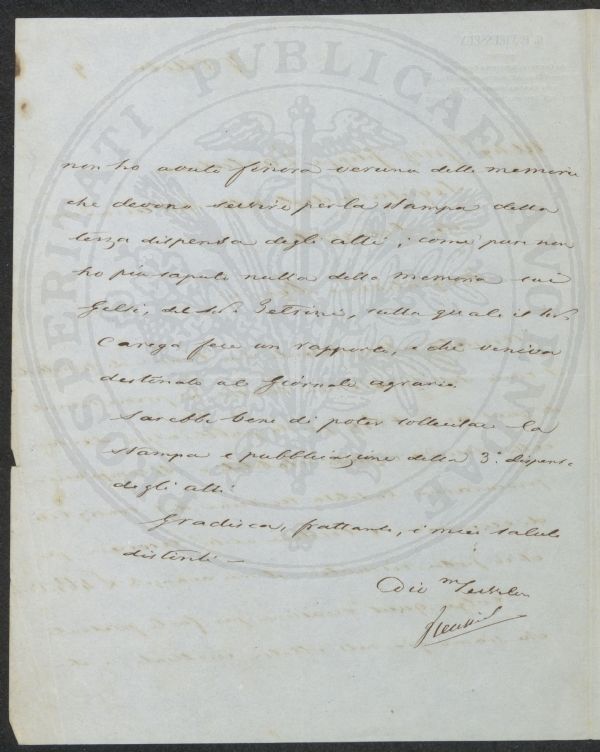 PROSPERITATI PUBLICAE AUGENDAE
non ho avuto finora veruna delle memorie
che devono servire per la stampa della
terza dispensa degli atti; come pure non
ho più saputo nulla della memoria sui
gelsi, del Sor Petrini, sulla quale il Sor
Carega fece un rapporto, e che veniva
destinato al Giornale agrario.
Sarebbe bene di poter sollecitar la
stampa e pubblicazione della 3a dispensa
degli atti.
Gradisca, frattanto, i miei saluti
distinti —